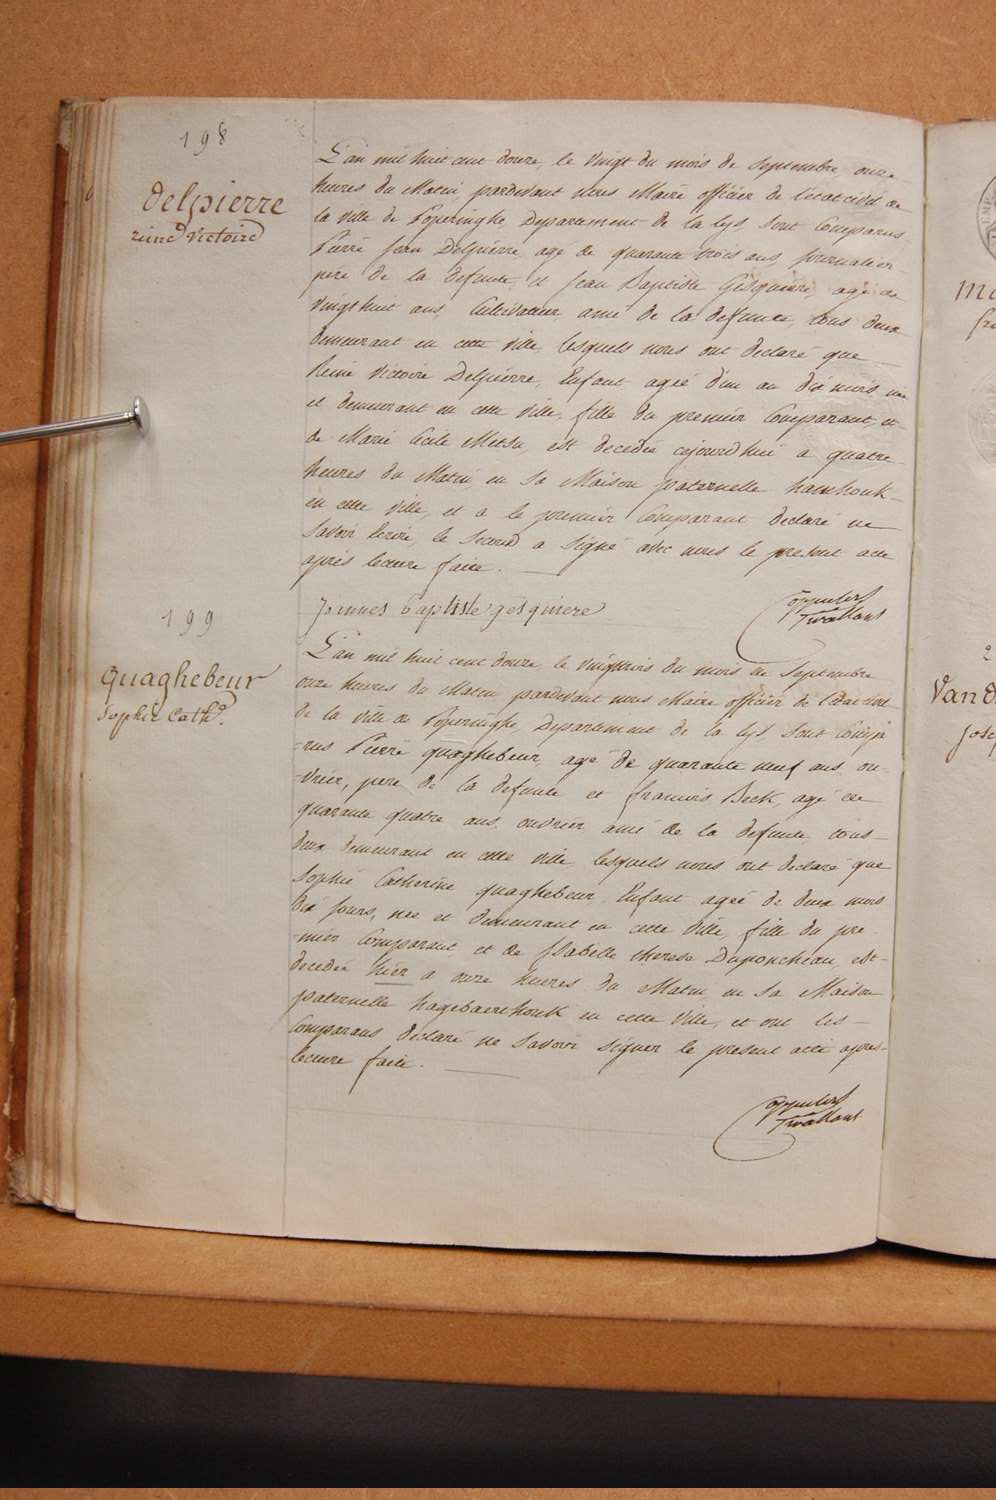 198
Delpierre
reine Victoire
L'an mil huit cent douze, le vingt du mois de Septembre, onze
heures du Matin pardevant nous Maire officier de l'état civil de
la ville de Poperinghe, Departement de la Lys, sont Comparus
Pierre Jean Delpierre agé de quarante trois ans, journalier
pere de la defunte, et Jean Baptiste Gesquiere, agé de
vingt huit ans, Cultivateur ami de la defunte, tous deux
demeurant en cette ville, lesquels nous ont declaré que
Reine Victoire Delpierre, Enfant agée d'un an dix mois née
et demeurant en cette ville, fille du premier Comparant, et
de Marie Cecile Metsu, est decedée cejourd'hui a quatre
heures du Matin, en sa Maison paternelle
en cette ville, et a le premier Comparant declaré ne
savoir écrire, le second a signé avec nous le present acte
après lecture faite.
Joannes baptiste gesquiere
199
quaghebeur
Sophie Cathe.
L'an mil huit cent douze, le vingttrois du mois de Septembre
onze heures du Matin pardevant nous Maire officier de l'état civil
de la ville de Poperinghe, Departement de la Lys sont Compa
-rus Pierre quaghebeur, agé de quarante neuf ans ou-
-vrier, pere de la defunte et francois Beck, agé de
quarante quatre ans ouvrier ami de la defunte tous
deux demeurant en cette ville lesquels nous ont declaré que
Sophie Catherine quaghebeur, Enfant agée de deux mois
dix jours, née et demeurant en cette ville, fille du pre-
-mier Comparant, et de Isabelle therese Duponcheau, est
decedée hier a onze heures du Matin en sa Maison
paternelle hagebaerthouk en cette ville, et ont les
Comparans declaré ne savoir signer le present acte apres
lecture faite.